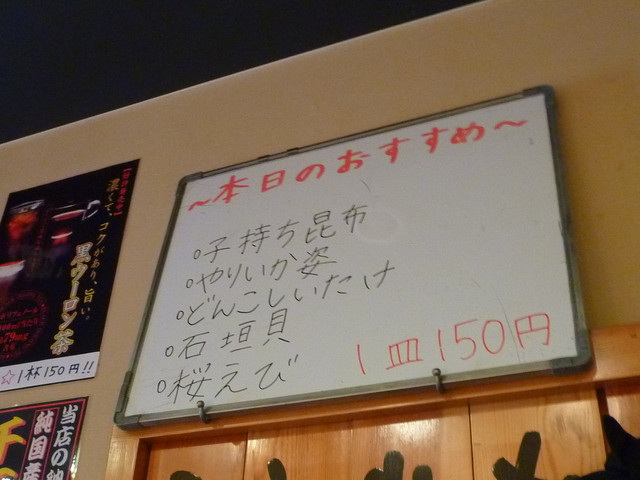 ～本日のおすすめ～
○子持ち昆布
○やりいか姿
○どんこしいたけ
○石垣貝
○桜えび
1皿150円
濃くて、コクがあり、旨い。
黒ウーロン茶
☆1杯150円!!
当店の
純国産